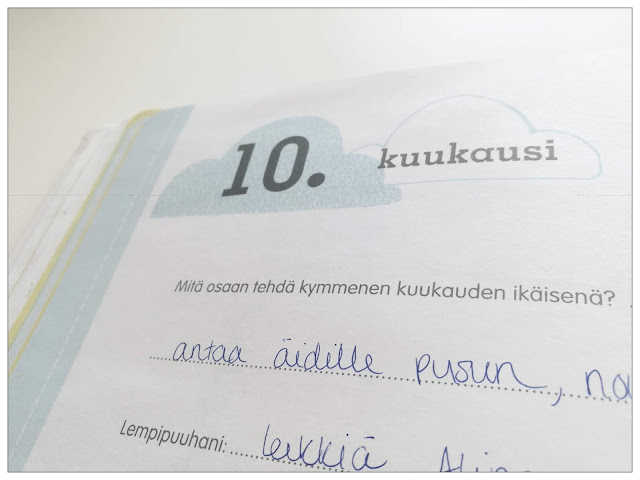 10. kuukausi
Mitä osaan tehdä kymmenen kuukauden ikäisenä?
antaa äidille pusun,
Lempipuuhani: leikkiä